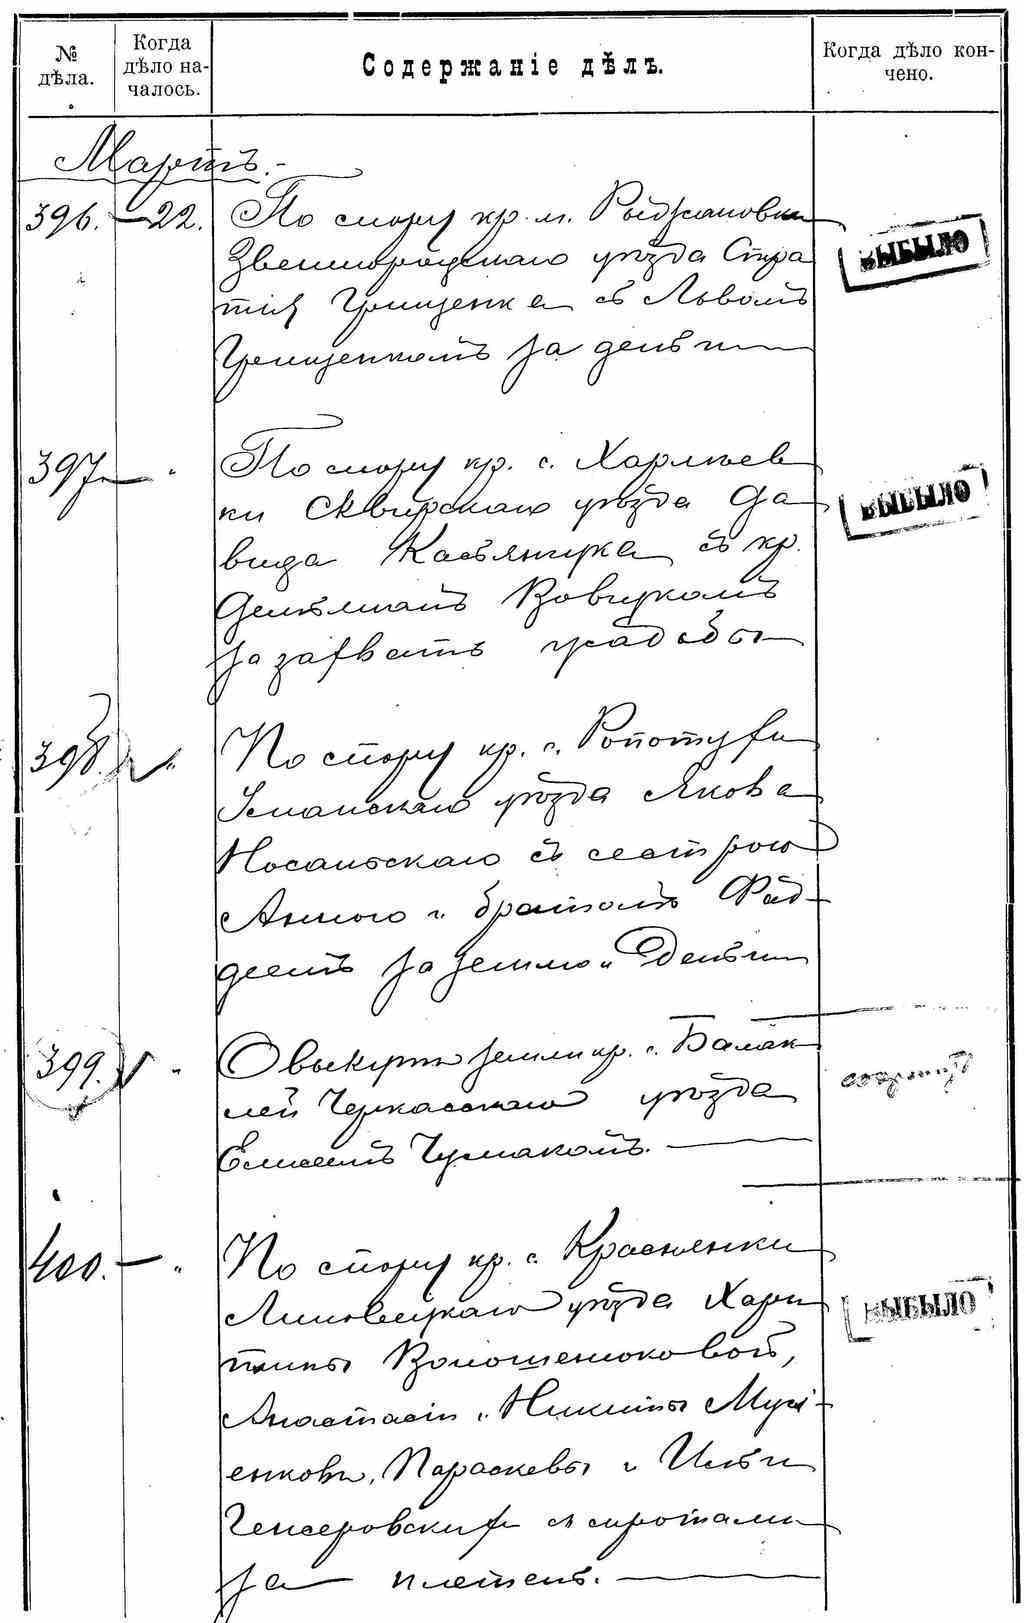 № дѣла.
Когда дѣло началось.
Содержаніе дѣлъ.
Когда дѣло кончено.
Мартъ.-
396. — 22. По спору кр. м. Рыжановки
Звенигородскаго уѣзда Стра
тія Грищенка съ Львомъ
Грищенкомъ за деньги
ВЫБЫЛО
397 — " По спору кр. с. Харлѣев
ки Сквирскаго уѣзда Да
вида Касьянчука съ кр.
Демьяномъ Вовчукомъ
за захватъ усадьбы
ВЫБЫЛО
398. " По спору кр. с. Ропотухи
Уманскаго уѣзда Якова
Носальскаго съ сестрою
Анною и братомъ Фад-
деемъ за землю и деньги
399. " О выкупѣ земли кр. с. Балак
лей Черкасскаго уѣзда
Елисеемъ Чумакомъ. —
400. — " По спору кр. с. Красненки
Липовецкаго уѣзда Хари
тины Волошенюковой,
Анастасіи и Никиты Мусі-
енковы, Параскевы и Ильи
съ сиротами
за плетень. —
ВЫБЫЛО